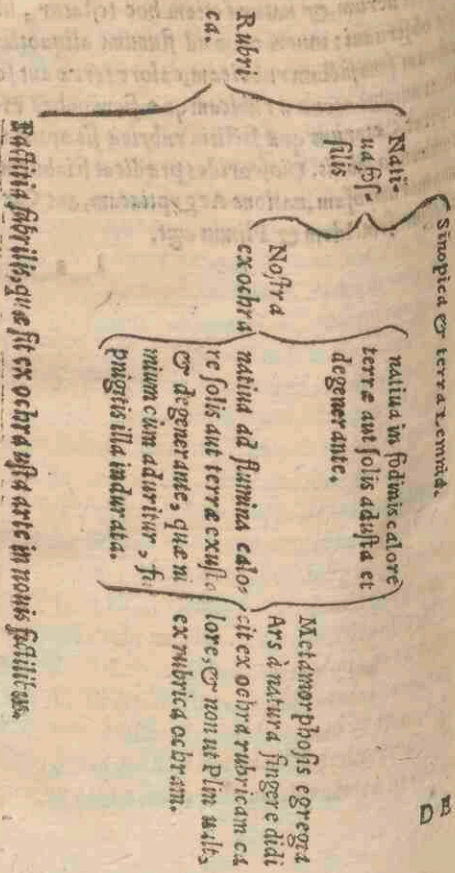 Rubri
ca.
Nati-
ua fos-
silis
Sinopica & terra Lemnia.
Nostra
ex ochra
natiua in fodinis calore
terræ aut solis adusta et
degenerante.
natiua ad flumina calo-
re solis aut terræ exusta
& degenerante, quæ ni
mium cùm aduritur, fit
pnigitis illa indurata.
Metamorphosis egregia
Ars à natura fingere didi
cit ex ochra rubricam ca
lore, & non ut Plin uult,
ex rubrica ochram.
Factitia fabrilis, quæ fit ex ochra usta arte in nouis fictilibus.
E
D